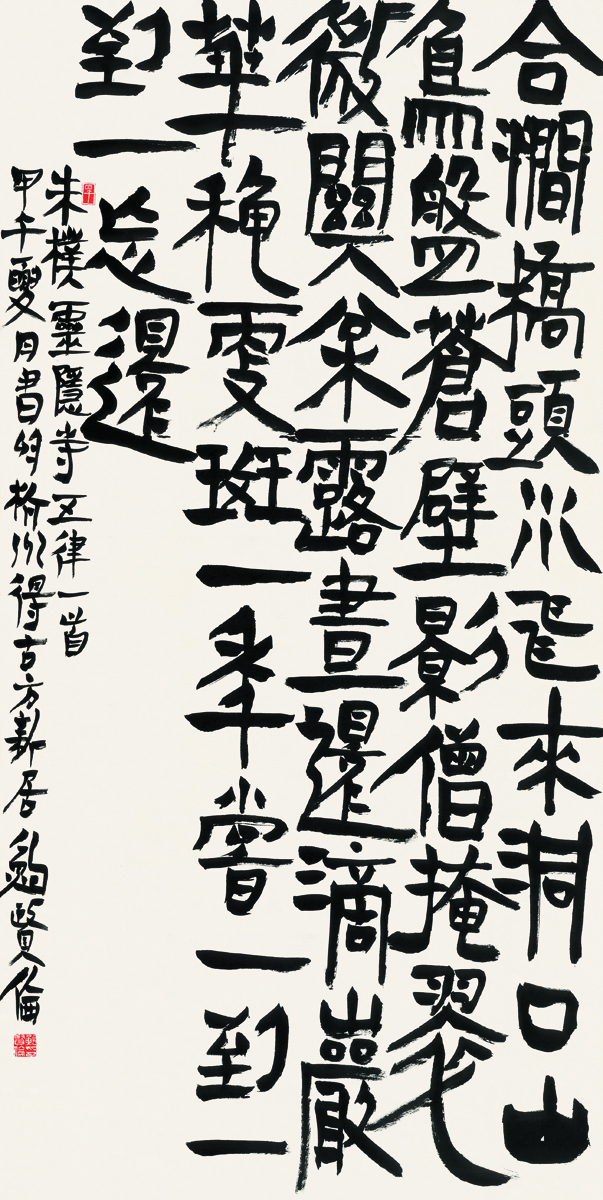 合澗橋頭水飛來洞口山
鳥盤蒼壁影僧掩翠
微關枀露晝還滴巖
華穐更斑一秊嘗一到一
到一忘還
朱樸靈隱寺五律一首
甲午夏月書於州得古方居賢倫